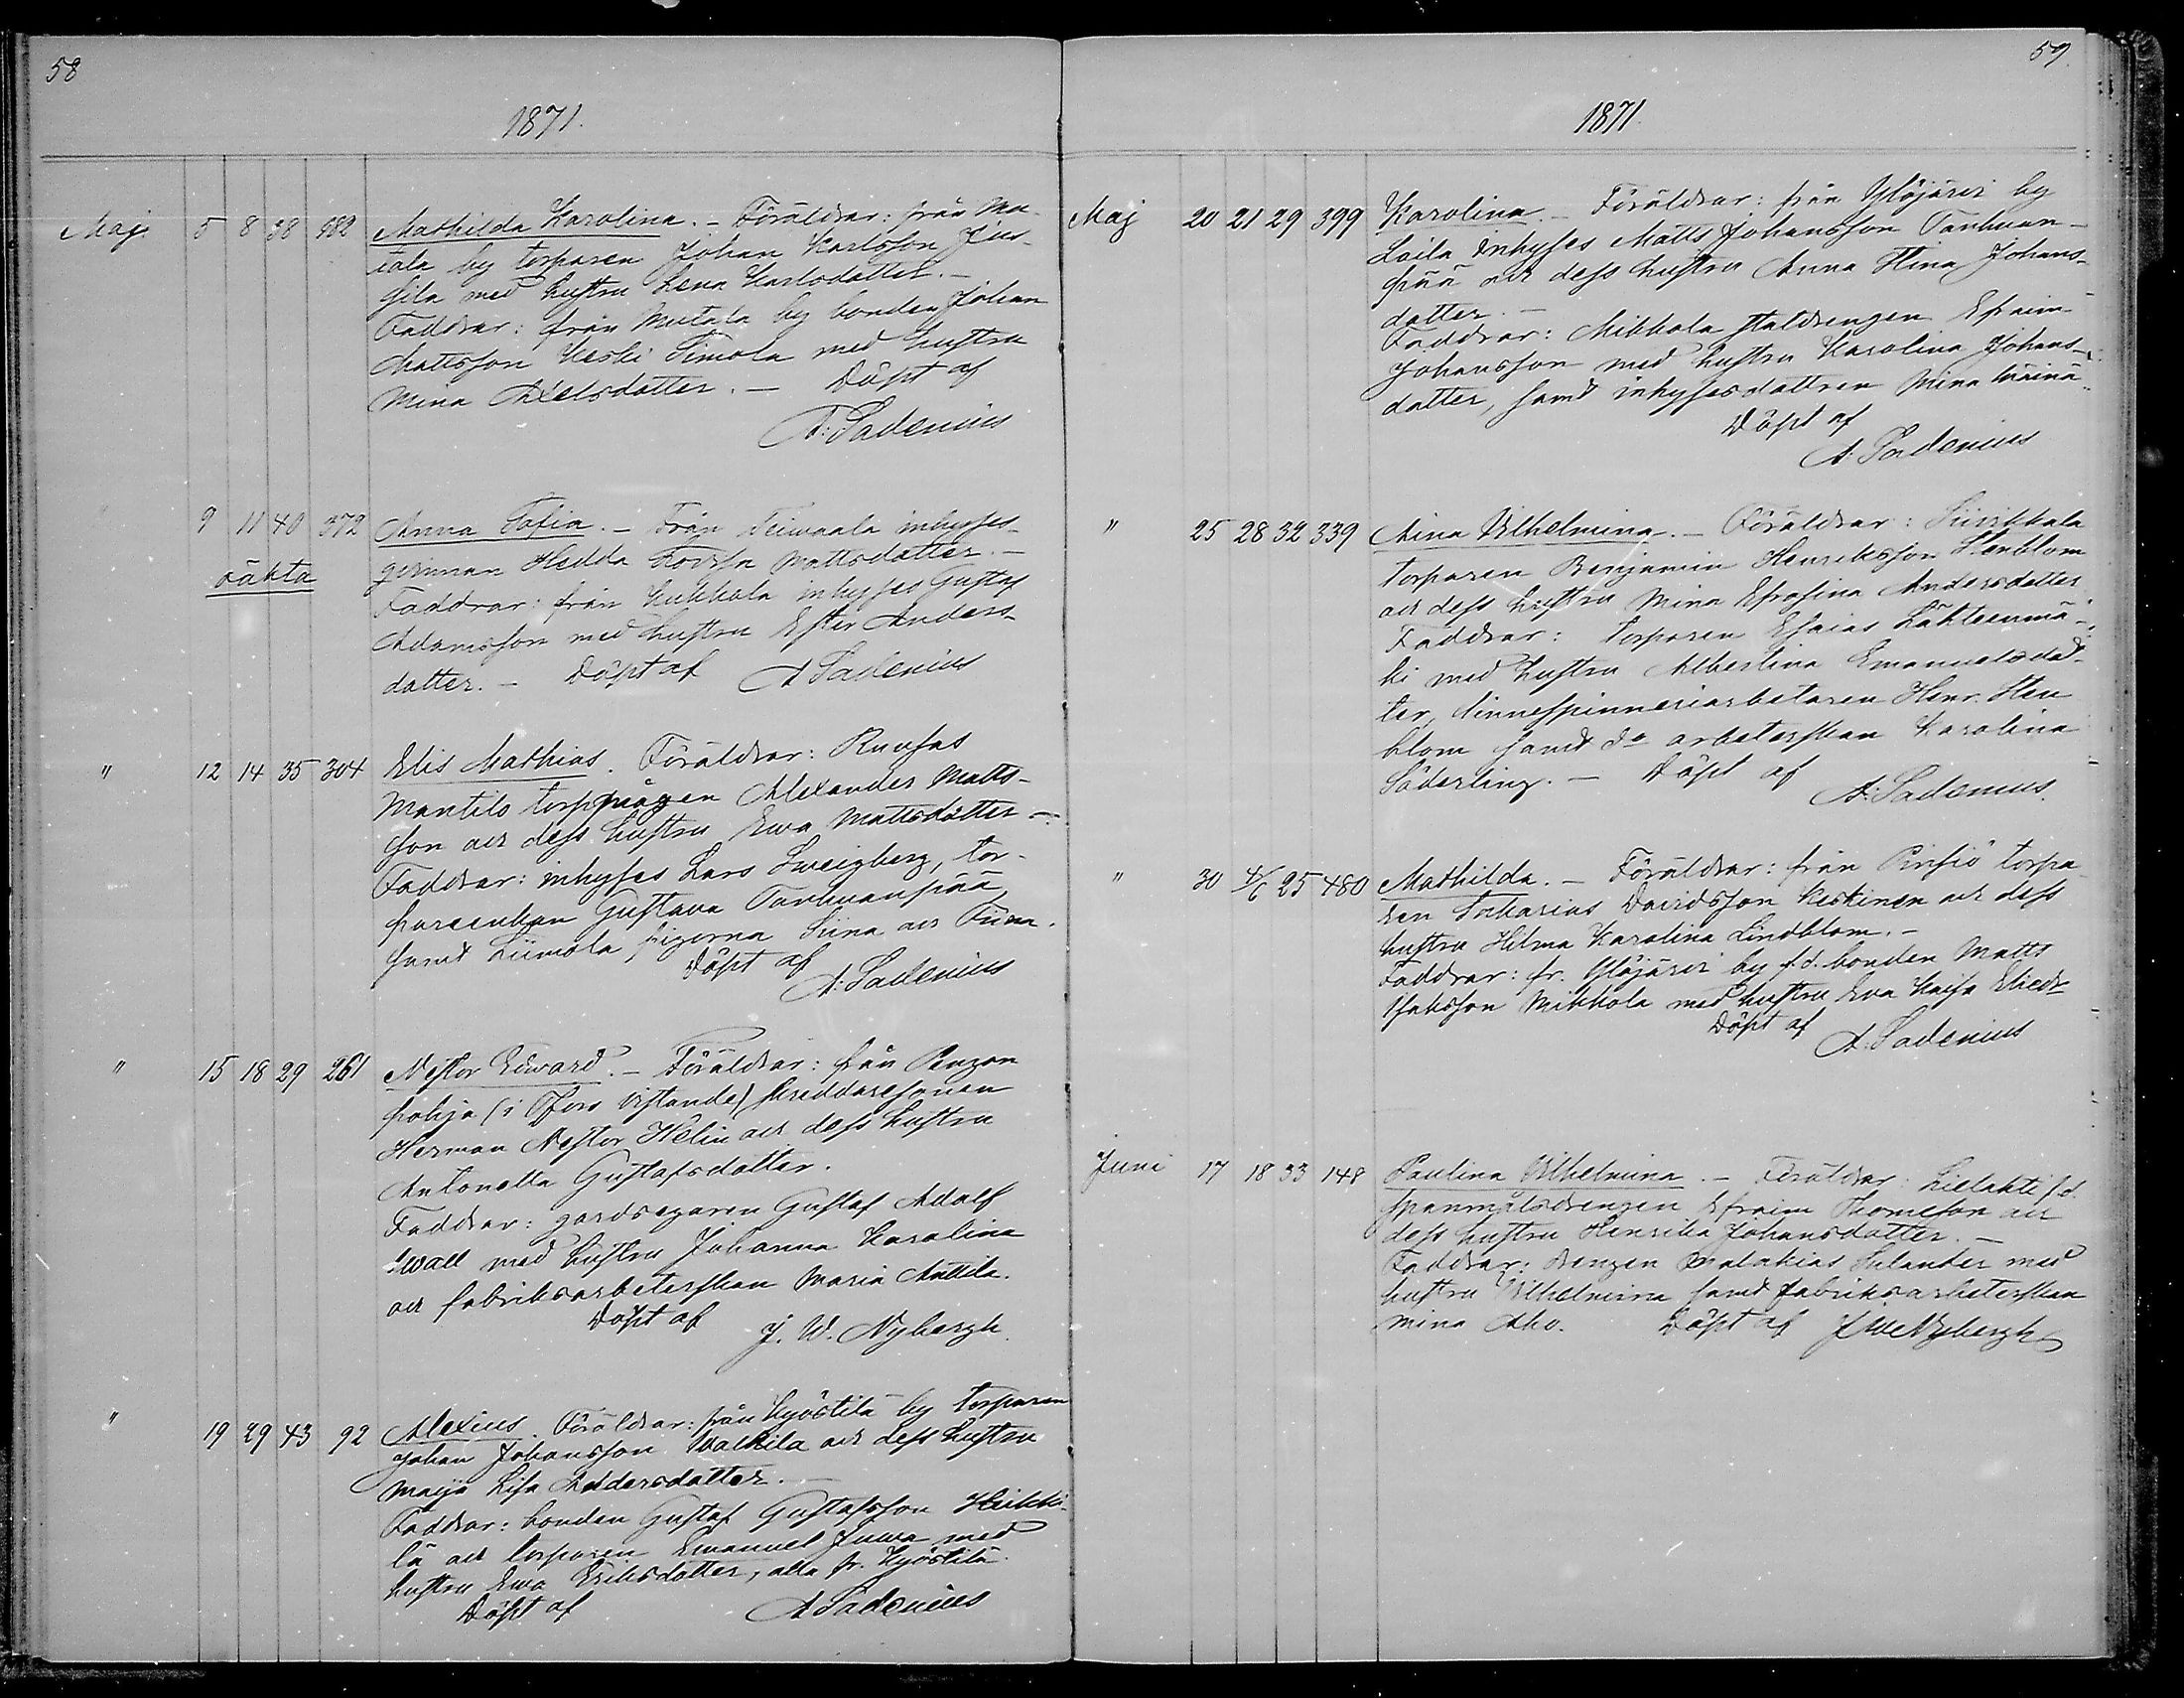 58
1871.
Maj. 5 8 38 Mathilda Karolina. – Föräldrar: från Mu-
tala by torparen Johan Karlsson Jus-
sila med hustru Lena Karlsdotter. –
Faddrar: från Mutala by bonden Johan
Mattsson Keski Simola med hustru
Mina Axelsdotter. – Döpt af
A: Sadenius
" 9 11 40 372 Anna Sofia. – Från Teivaala inhyses-
qvinnan Hedda Lovisa Mattsdotter. –
oäkta
Faddrar: från Kukkola inhyses Gustaf
Adamsson med hustru Ester Anders-
dotter. – Döpt af A Sadenius
" 12 14 35 304 Elis Mathias. Föräldrar: Runsas
Mantils Alexander Matts-
son och dess hustru Ewa Mattsdotter –
Faddrar: inhyses Lars Sweigberg, tor-
pareenkan Gustava Tanhuanpää
samt Liimola pigorna Stina och Fiina.
Döpt af
A: Sadenius
" 15 18 29 261 Nestor Edward. – Föräldrar: från Pengon
pohja (i Tfors vistande) skreddaresonen
Herman Nestor Helin och dess hustru
Antonetta Gustafsdotter.
Faddrar: gardsegaren Gustaf Adolf
Iwall med hustru Johanna Karolina
och fabriksarbeterskan Maria Anttila.
Döpt af
J. W. Nybergh.
" 19 29 43 92 Alexius. Föräldrar: från Kyöstilä by torparen
Johan Johansson Walkila och dess hustru
Maija Lisa Andersdotter. –
Faddrar: bonden Gustaf Gustafsson Heikki-
lä och torparen Emanuel Juwa med
hustru Ewa Eriksdotter, alla fr. Kyöstilä.
Döpt af A Sadenius
59.
1871.
Maj 20 21 29 399 Karolina. – Föräldrar: från Ylöjärvi by
Laila inhyses Matts Johansson Tanhuan-
pää och dess hustru Anna Stina Johans-
dotter. –
Faddrar: Mikkola stalldrengen Efraim
Johansson med hustru Karolina Johans-
dotter, samt inhysesdottren Mina
Döpt af
A. Sadenius
" 25 28 32 339 Aina Wilhelmina. – Föräldrar: Siivikkala
torparen Benjamin Henriksson Stenblom
och dess hustru Mina Efrosina Andersdotter
Faddrar: torparen Esaias Lähteenmä-
ki med hustru Albertina Emanuelsdot-
ter, linnespinneriarbetaren Henr. Sten
blom samt do arbeterskan Karolina
Söderling. – Döpt af
A: Sadenius.
" 30 4/6 25 480 Mathilda. – Föräldrar: från Pinsiö torpa
ren Zacharias Davidsson Keskinen och dess
hustru Hilma Karolina Lindblom. –
Faddrar: fr. Ylöjärvi by f.d. bonden Matts
Isaksson Mikkola med hustru Eva Kaisa Eliedr
Döpt af
A. Sadenius
Juni 17 18 33 148 Paulina Wilhelmina. – Föräldrar: Lielahti f.d.
spanmålsdrengen Efraim Thomeson och
dess hustru Henrika Johansdotter. –
Faddrar: drengen Malakias Selander med
hustru Wilhelmina samt fabriksarbeterskan
Mina Aho. Döpt af J W Nybergh